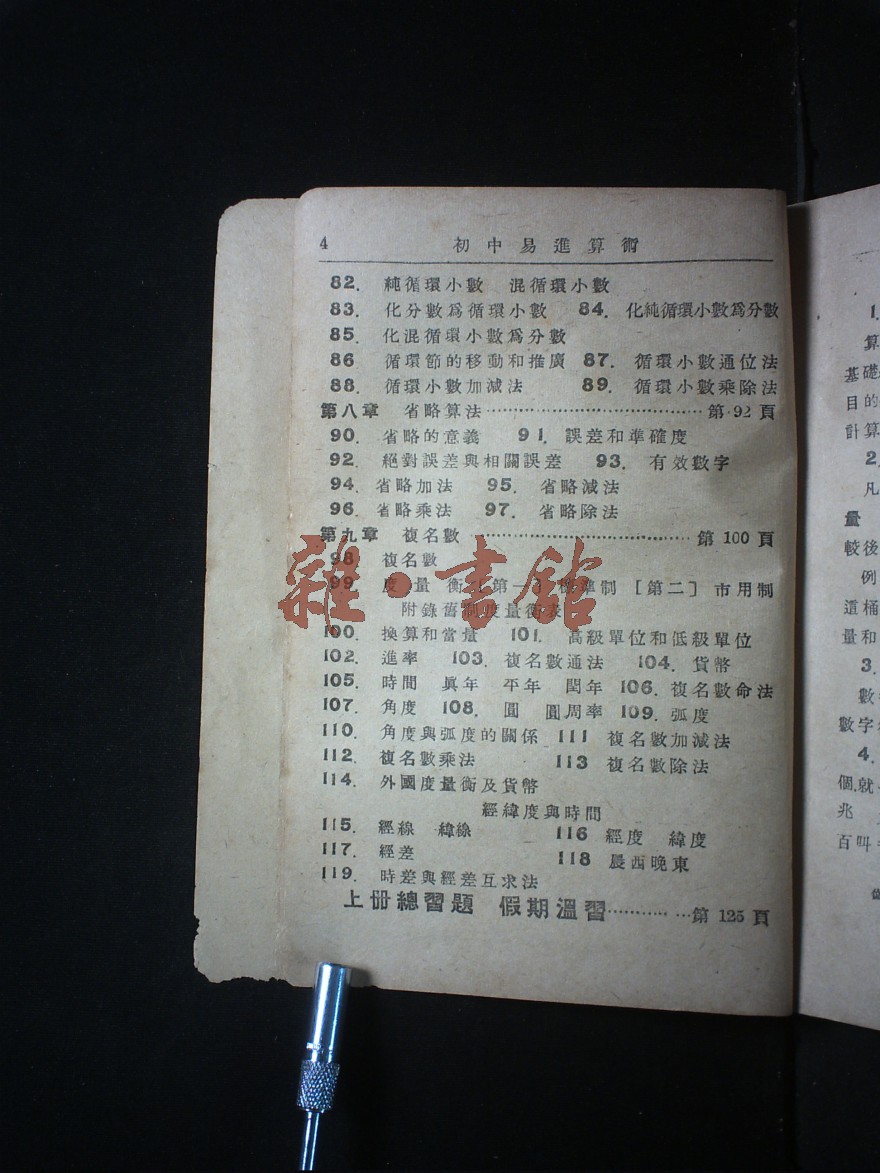 4 初中易進算術
82. 純循環小數 混循環小數
83. 化分數爲循環小數 84. 化純循環小數爲分數
85. 化混循環小數爲分數
86 循環節的移動和推廣 87. 循環小數通位法
88. 循環小數加減法 89. 循環小數乘除法
第八章 省略算法……………………………第 92 頁
90. 省略的意義 91. 誤差和準確度
92. 絕對誤差與相關誤差 93. 有效數字
94. 省略加法 95. 省略減法
96. 省略乘法 97. 省略除法
第九章 複名數……………………………第 100 頁
98 複名數
99 度 量 衡 第一 標準制 [第二] 市用制
附錄舊制度量衡表
100. 換算和當量 101. 高級單位和低級單位
102. 進率 103. 複名數通法 104. 貨幣
105. 時間 眞年 平年 閏年 106. 複名數命法
107. 角度 108. 圓 圓周率 109. 弧度
110. 角度與弧度的關係 111 複名數加減法
112. 複名數乘法 113 複名數除法
114. 外國度量衡及貨幣
經緯度與時間
115. 經線 緯線 116 經度 緯度
117. 經差 118 晨西晚東
119. 時差與經差互求法
上册總習題 假期溫習…………第 125 頁
雜·書館
1.
算
基礎
目的
計算
2.
凡
量
較後
例
這桶
量和
3.
數
數字
4.
個,就
兆
百叫